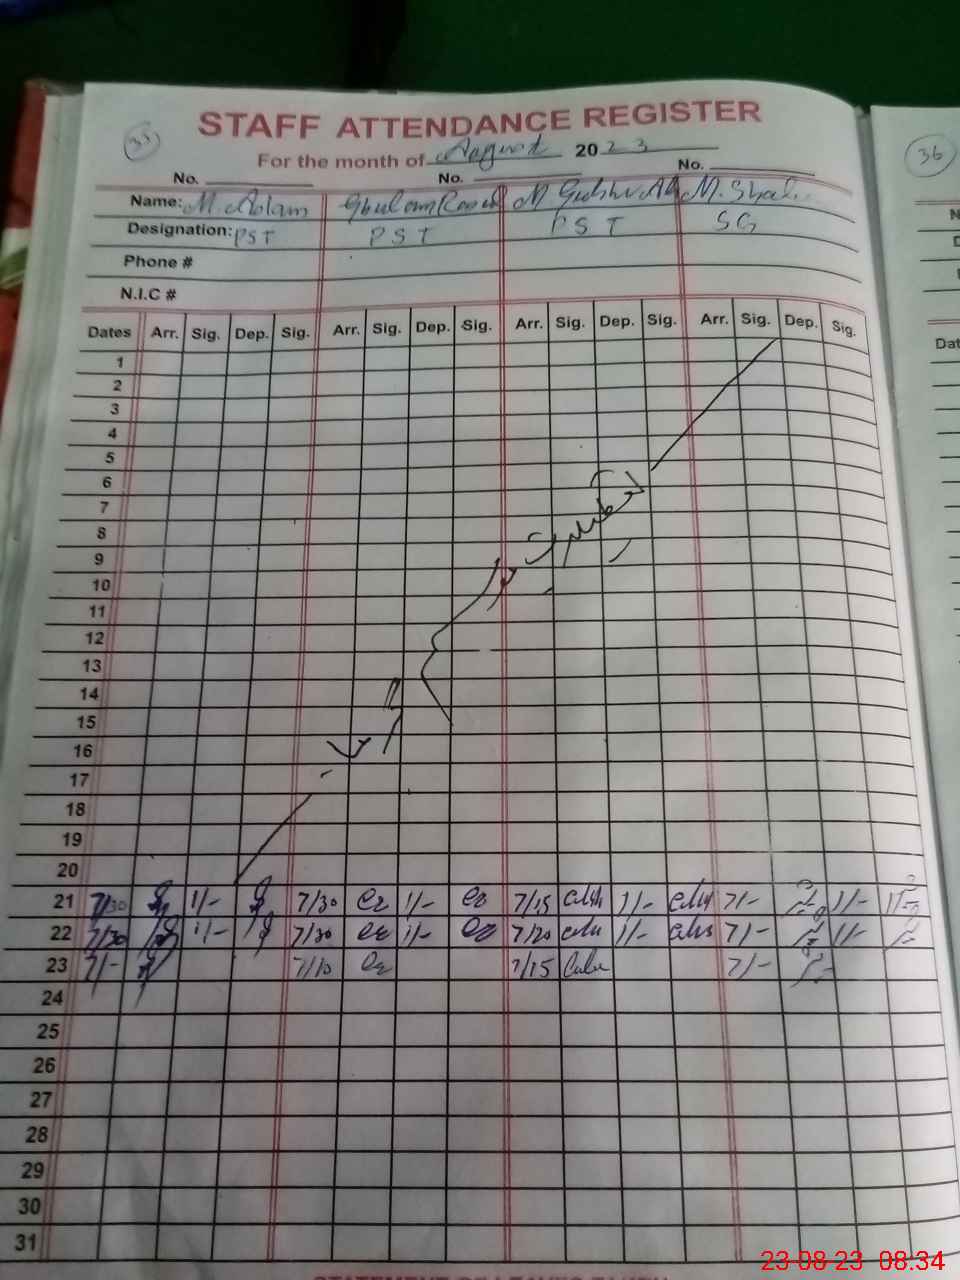 35
STAFF ATTENDANCE REGISTER
For the month of August 2023
No. No. No.
Name: M. Aslam Ghulam Rasul M M. Sha
Designation: PST PST PST SG
Phone #
N.I.C #
Dates Arr. Sig. Dep. Sig. Arr. Sig. Dep. Sig. Arr. Sig. Dep. Sig. Arr. Sig. Dep. Sig.
1
2
3
4
5
6
7
8
9
10
11
12
13
14
15
16
17
18
19
20
21 7/30 1/- 7/30 1/- 7/15 1/- 7/- 1/-
22 7/30 1/- 7/30 1/- 7/20 1/- 7/- 1/-
23 7/- 7/10 7/15 7/-
24
25
26
27
28
29
30
31
36
23-08-23 08:34